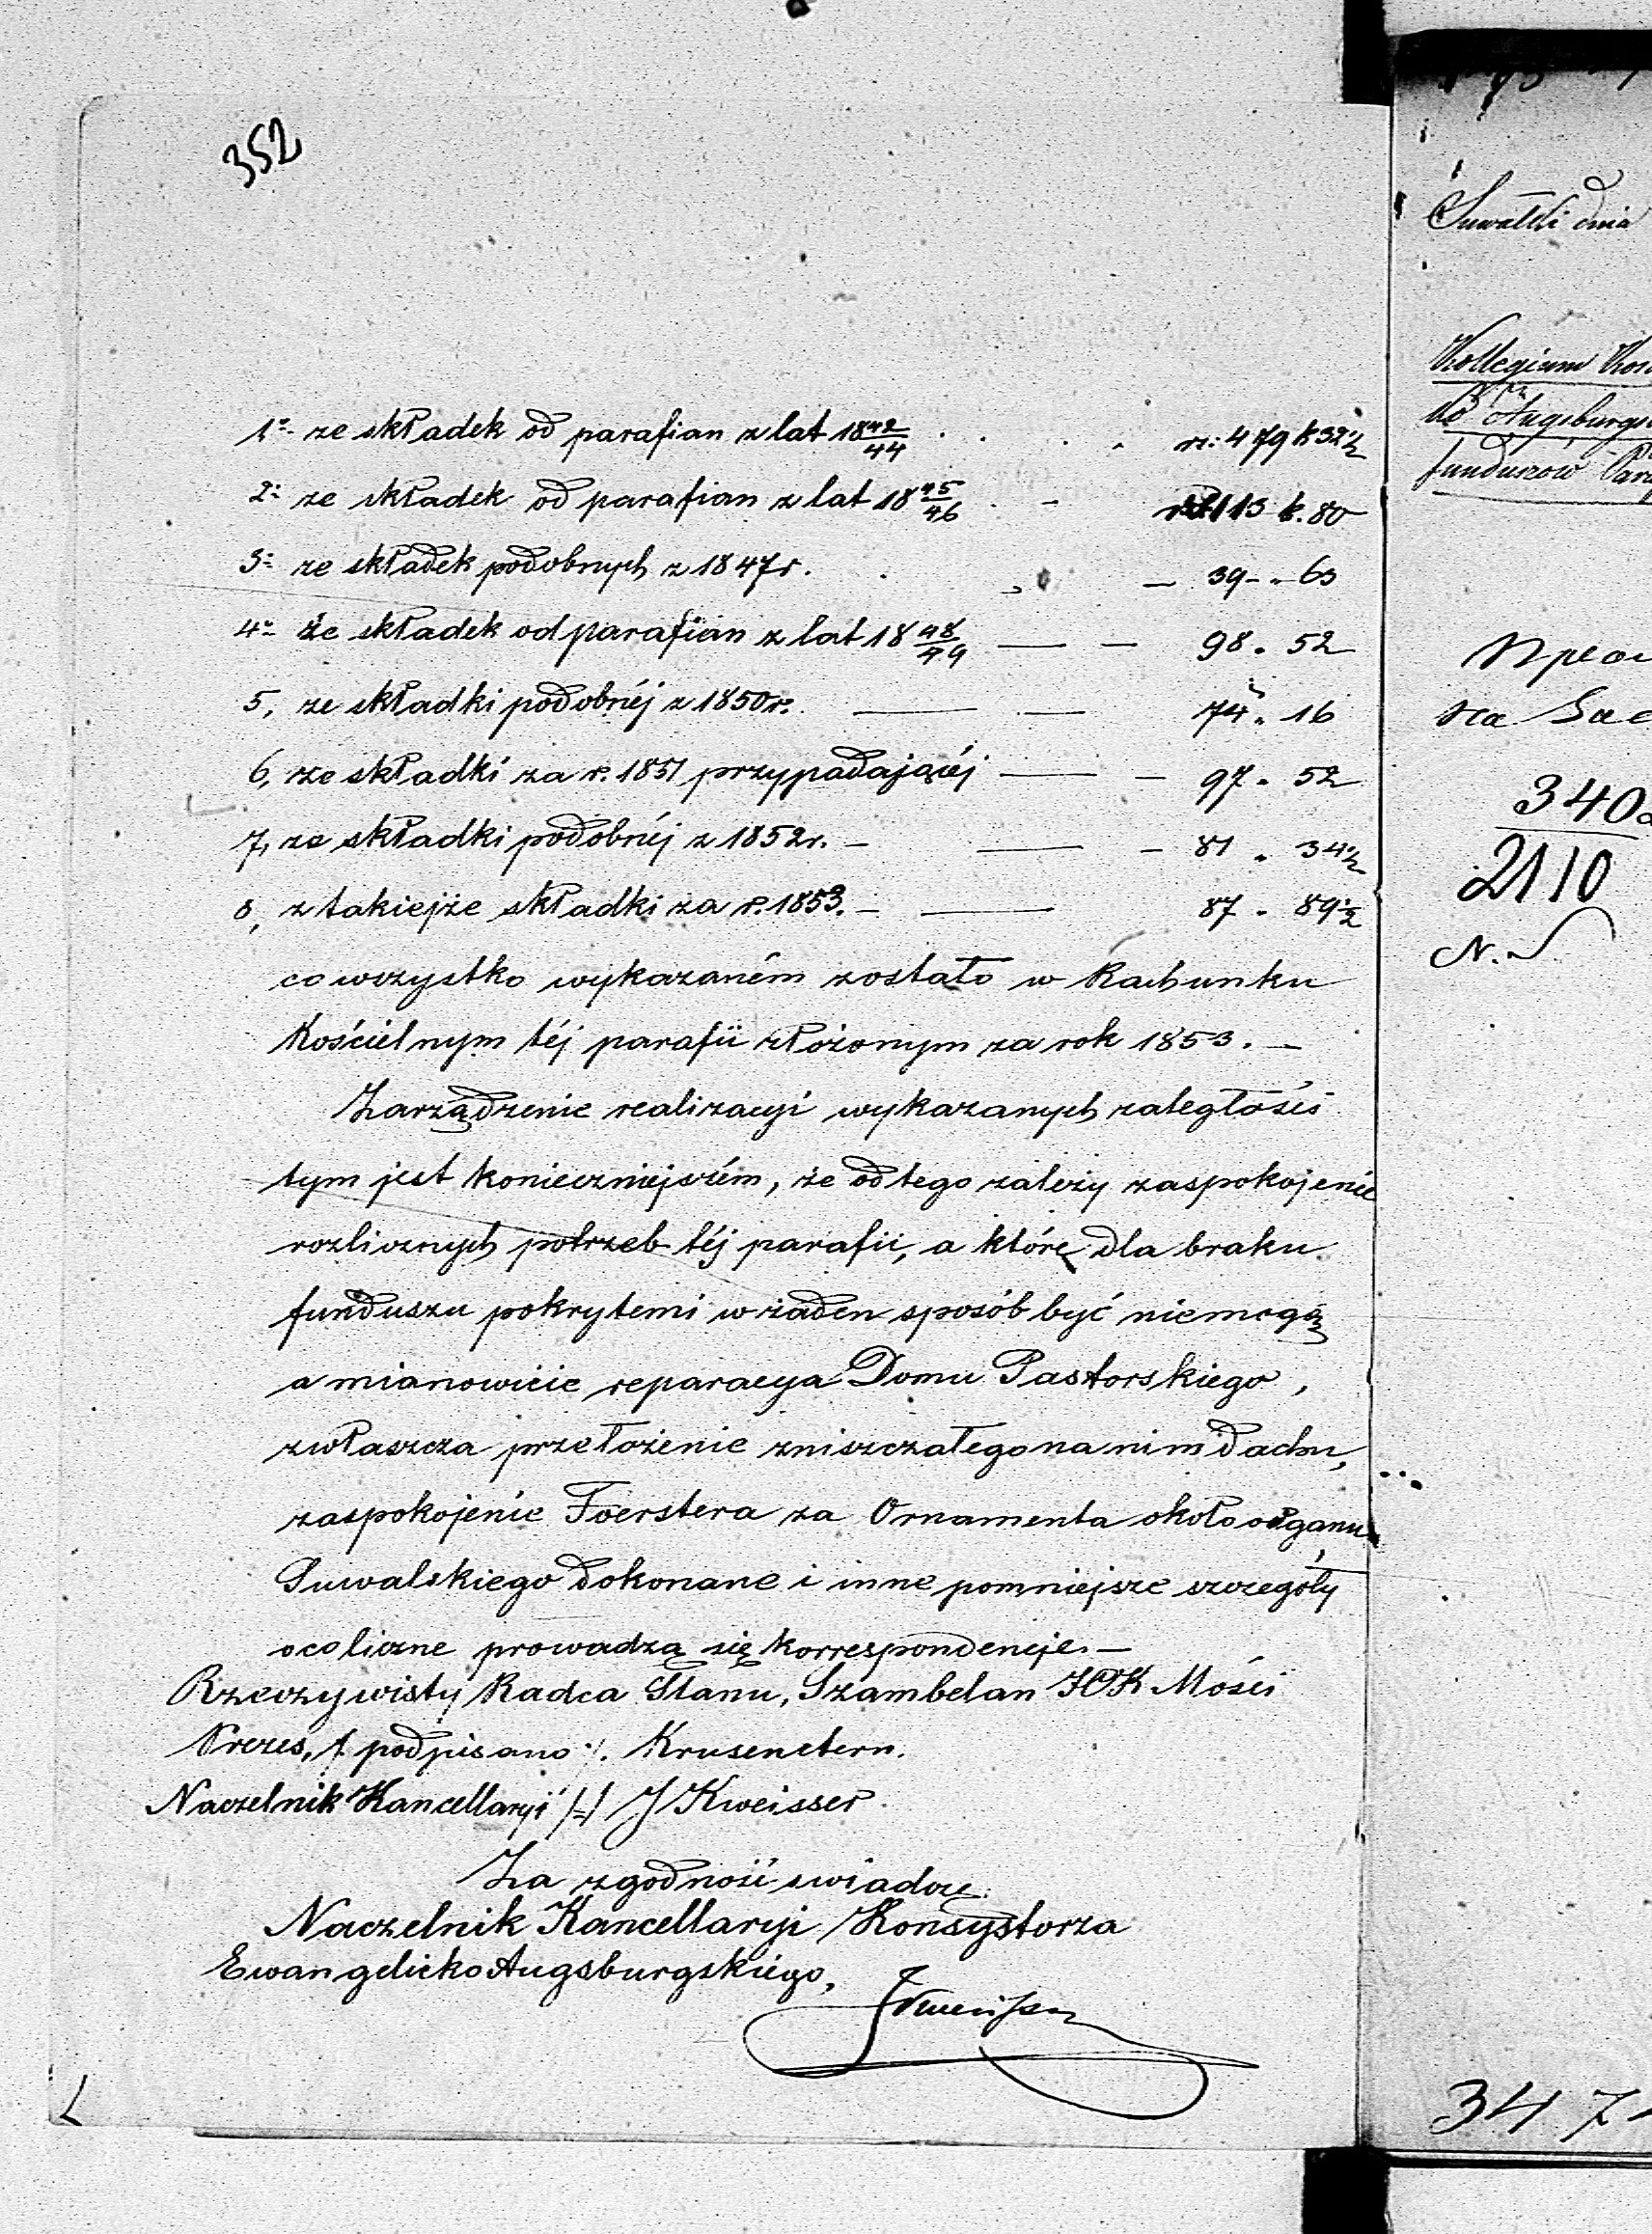 352
1º ze składek od parafian z lat 1842/44 . . . . rs: 479 k 32½
2º ze składek od parafian z lat 1845/46 . - 113 k. 80
3º ze składek podobnych z 1847 r. . „ — 39 - „ 63
4º że składek od parafian z lat 1848/49 — — 98 „ 52
5, ze składki podobnéj z 1850 r. — — 74 „ 16
6, ze składki za r. 1851 przypadającéj — — 97 „ 52
7, ze składki podobnéj z 1852 r. — — — 81 „ 34½
8, z takiejże składki za r. 1853. — — 87 „ 89½
co wszystko wykazaném zostało w Rachunku
Kościelnym téj parafii złożonym za rok 1853. —
Zarządzenie realizacyi wykazanych zaległości
tym jest konieczniejszém, że od tego zależy zaspokojenie
rozlicznych potrzeb téj parafii, a które dla braku
funduszu pokrytemi w żaden sposób być niemogą
a mianowicie reparacya Domu Pastorskiego,
zwłaszcza przełożenie zniszczałego na nim dachu,
zaspokojenie Foerstera za Ornamenta około organu
Suwalskiego dokonane i inne pomniejsze szczegóły
oco liczne prowadzą się korrespondencje. —
Rzeczywisty Radca Stanu, Szambelan JCK Mości
Prezes, /. podpisano ./. Krusenstern.
Naczelnik Kancellaryi /-/ J Kweisser
Za zgodność swiadczę
Naczelnik Kancellaryi Konsystorza
Ewangelicko Augsburgskiego,
Suwałki dnia
Kollegium
Augsburgs
funduszów
на
340
2110
N.
347